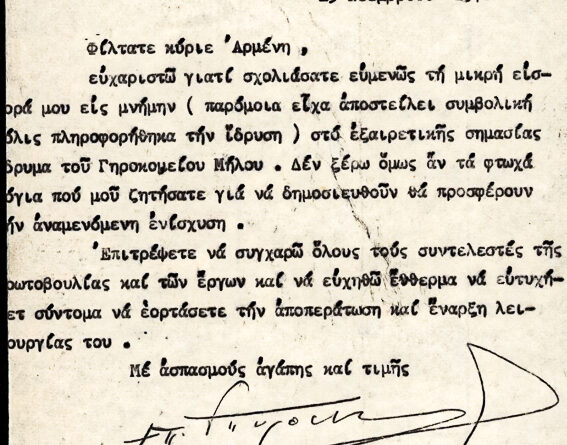 Φίλτατε κύριε Ἀρμένη ,
εὐχαριστῶ γιατί σχολιάσατε εὐμενῶς τή μικρή εἰσ-
ορά μου εἰς μνήμην ( παρόμοια εἶχα ἀποστείλει συμβολική
όλις πληροφορήθηκα τήν ἵδρυση ) στό ἐξαιρετικῆς σημασίας
δρυμα τοῦ Γηροκομείου Μήλου . Δέν ξέρω ὅμως ἄν τά φτωχά
όγια πού μοῦ ζητήσατε γιά νά δημοσιευθοῦν θά προσφέρουν
ήν ἀναμενόμενη ἐνίσχυση .
Ἐπιτρέψετε νά συγχαρῶ ὅλους τούς συντελεστές τῆς
ρωτοβουλίας καί τῶν ἔργων καί νά εὐχηθῶ ἔνθερμα νά εὐτυχή-
ετ σύντομα νά ἑορτάσετε τήν ἀποπεράτωση καί ἔναρξη λει-
ουργίας του .
Μέ ἀσπασμούς ἀγάπης καί τιμῆς